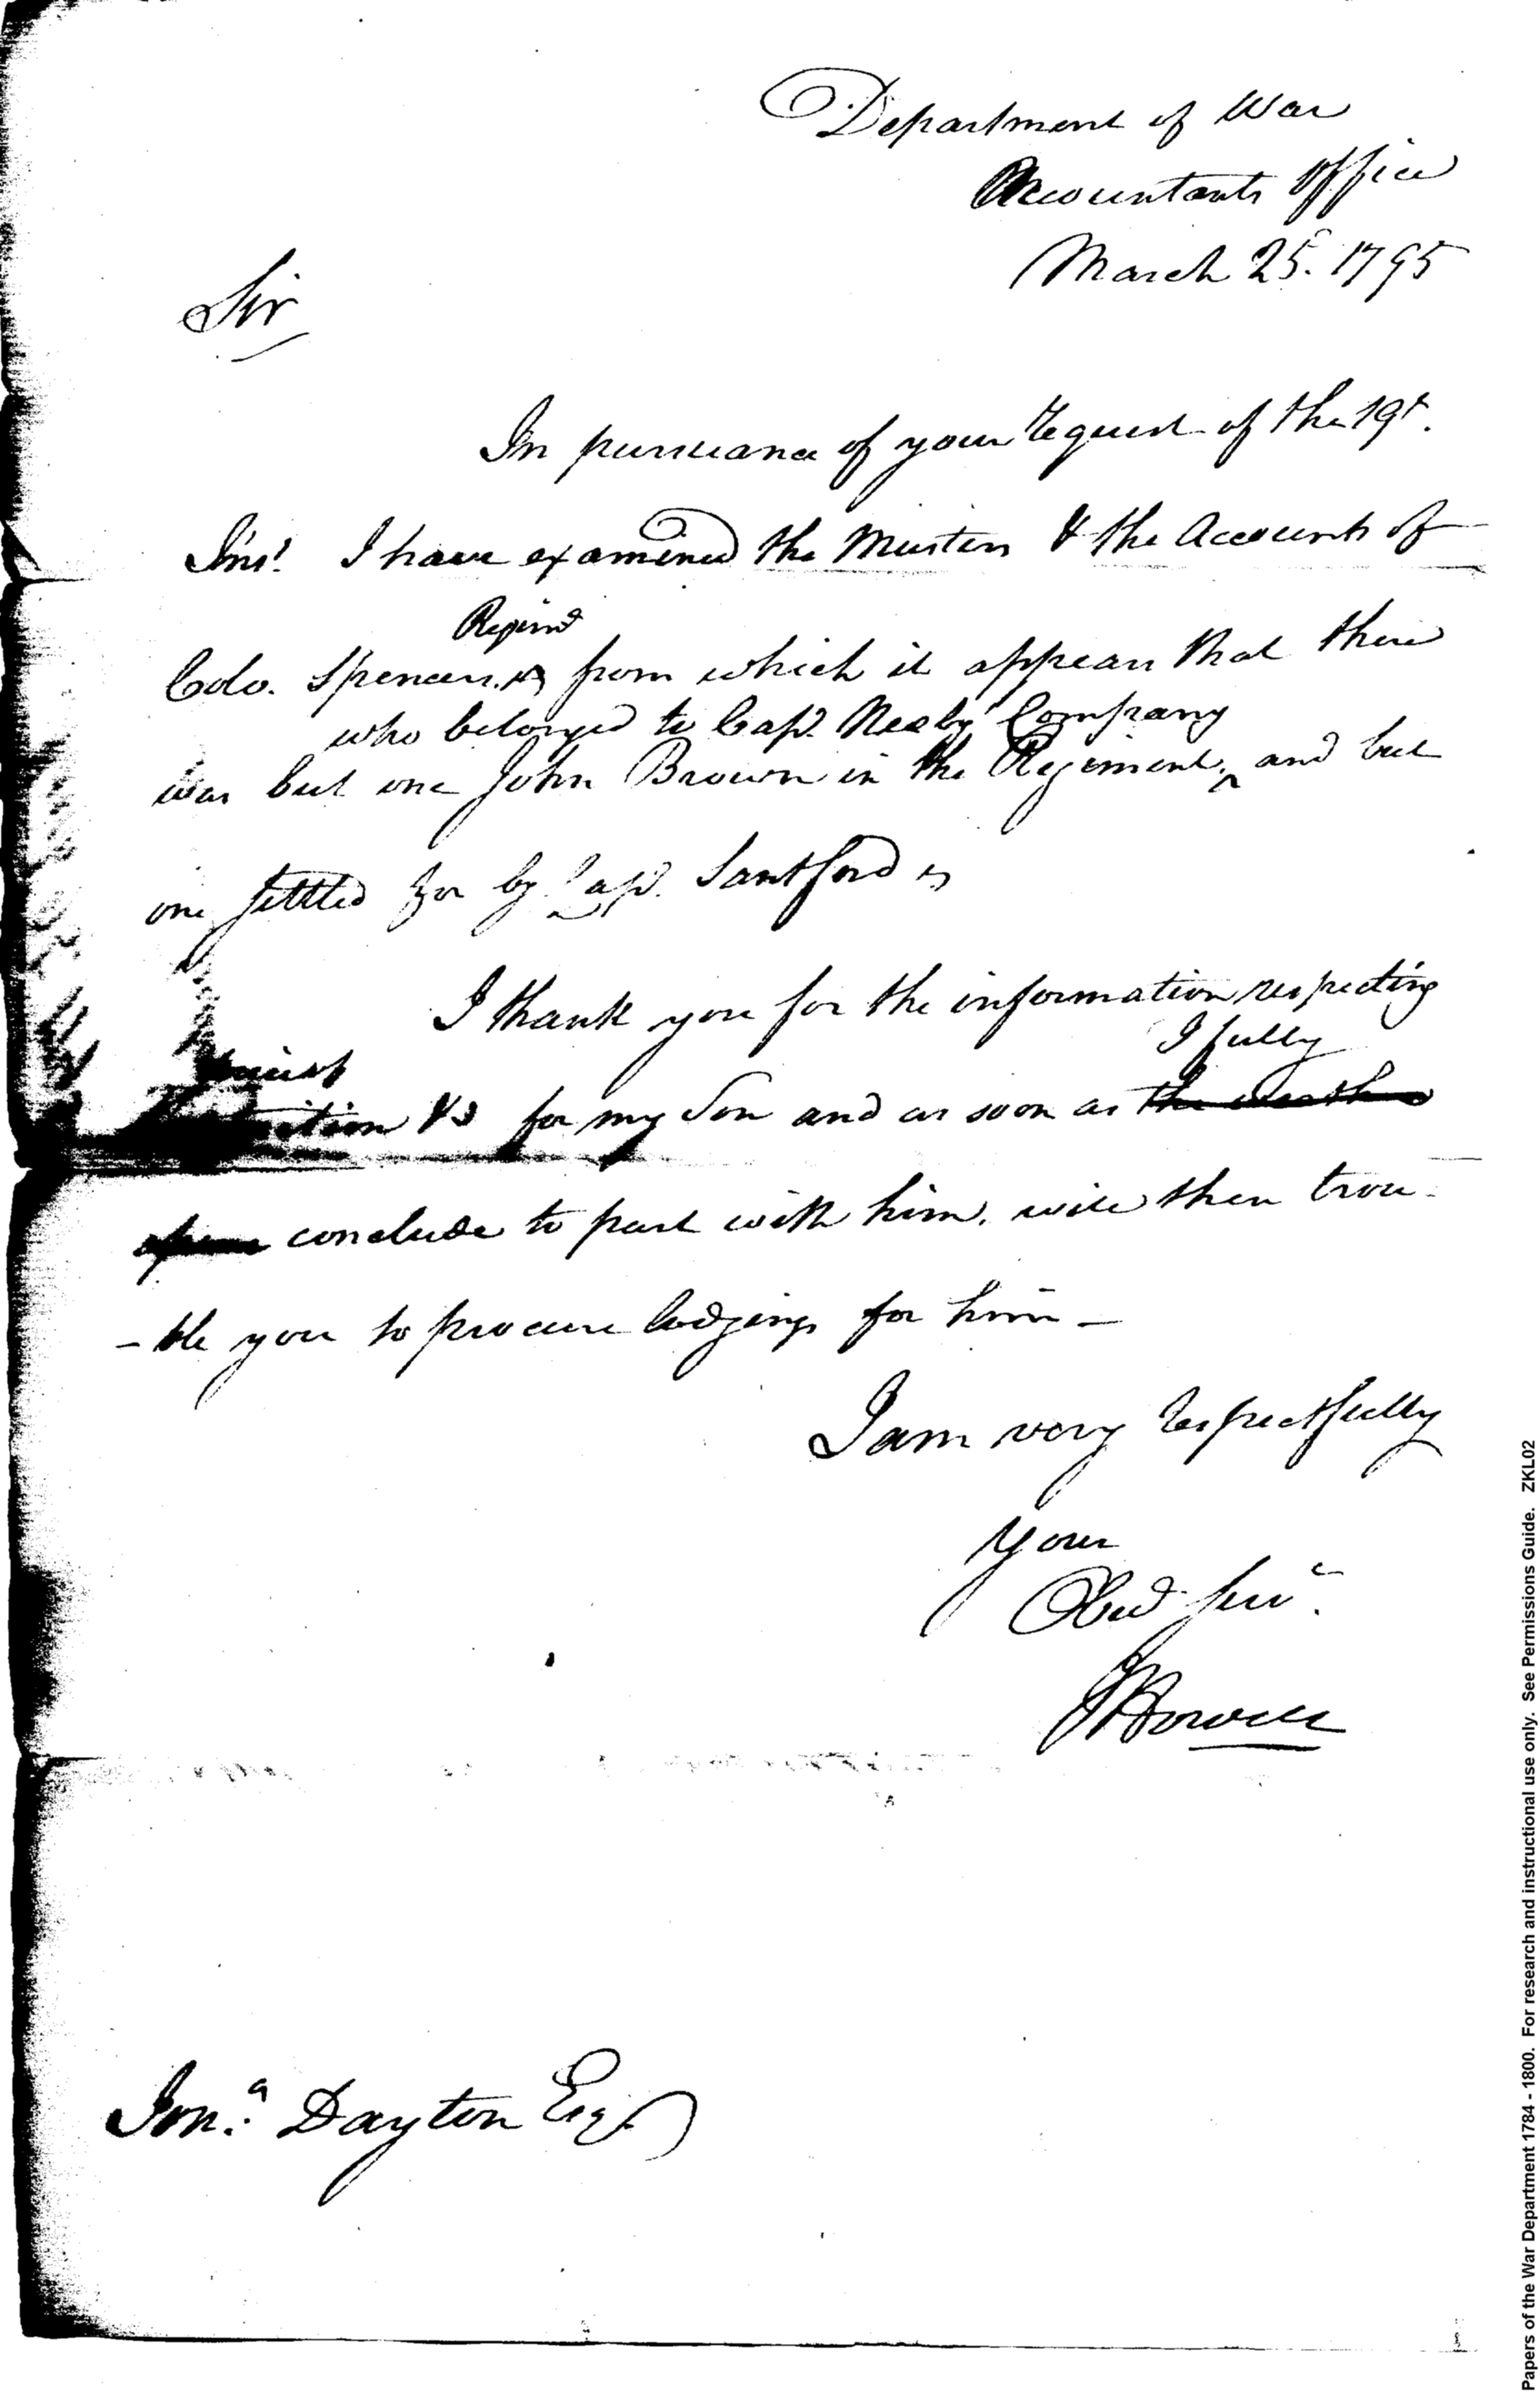 Department of War
Accountants Office
March 25. 1795
Sir
In pursuance of your request of the 19t.
Inst. I have examined the Musters & the Accounts of
Regimt
Colo. Spencers from which it appears that there
who belonged to Capt. Company
was but one John Brown in the Regiment, and but
one settled for by Capt. Santford
I thank you for the information respecting
I fully
&c for my Son and as soon as the
conclude to part with him. will then trou-
-ble you to procure lodgings for him -
I am very respectfully
your
Obed Servt.
J Howell
Jona. Dayton Esq
Papers of the War Department 1784 - 1800. For research and instructional use only. See Permissions Guide. ZKL02